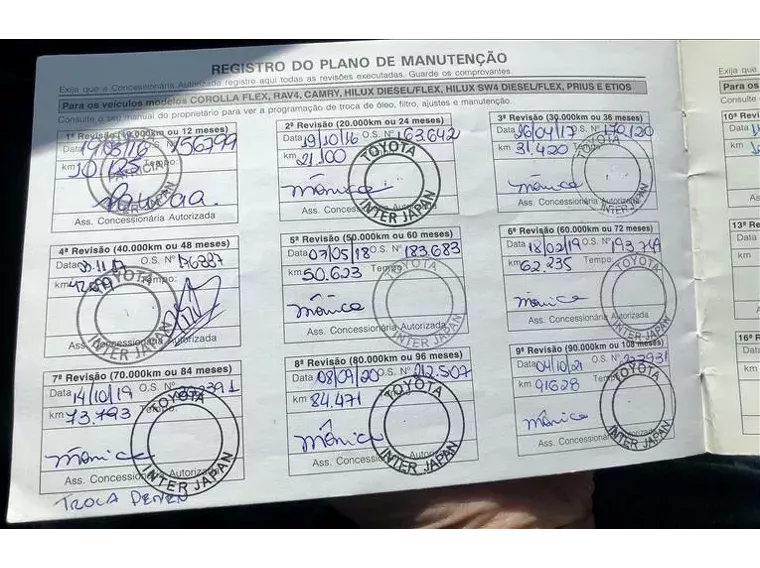 REGISTRO DO PLANO DE MANUTENÇÃO
Exija que a Concessionária Autorizada registro aqui todas as revisões executadas. Guarde os comprovantes.
Para os veículos modelos COROLLA FLEX, RAV4, CAMRY, HILUX DIESEL/FLEX, HILUX SW4 DIESEL/FLEX, PRIUS E ETIOS
Consulte o seu manual do proprietário para ver a programação de troca de óleo, filtro, ajustes e manutenção.
1ª Revisão (10.000km ou 12 meses)
Data 19/03/16 156799
km 10.125 Tempo:
Ass. Concessionária Autorizada
2ª Revisão (20.000km ou 24 meses)
Data 19/10/16 O.S. Nº 163.642
km 21.100
Mônica
TOYOTA
INTER JAPAN
Ass. Concessionária
3ª Revisão (30.000km ou 36 meses)
Data 26/04/17 O.S. Nº 170.120
km 31.420 Tempo
Mônica
TOYOTA
INTER JAPAN
Ass. Concessionária
4ª Revisão (40.000km ou 48 meses)
Data O.S. Nº
km
TOYOTA
INTER JAPAN
Ass. Concessionária Autorizada
5ª Revisão (50.000km ou 60 meses)
Data 07/05/18 O.S. Nº 183.683
km 50.623 Tempo
Mônica
TOYOTA
INTER JAPAN
Ass. Concessionária Autorizada
6ª Revisão (60.000km ou 72 meses)
Data 18/02/19 O.S. Nº
km 62.235 Tempo
Mônica
TOYOTA
INTER JAPAN
Ass. Concessionária
7ª Revisão (70.000km ou 84 meses)
Data 14/10/19 O.S. Nº
km 73.793 Tempo:
Mônica
TOYOTA
INTER JAPAN
Ass. Concessionária Autorizada
TROCA
8ª Revisão (80.000km ou 96 meses)
Data 08/09/20 O.S. Nº 212.507
km 84.471
Mônica
TOYOTA
INTER JAPAN
Ass. Concessionária
9ª Revisão (90.000km ou 108 meses)
Data 04/10/21 O.S. Nº
km 91628 Tempo
Mônica
TOYOTA
INTER JAPAN
Ass. Concessionária Autorizada
Exija que a
Para os
Consulte o
10ª Re
Data
km
13ª R
Data
km
16ª R
Data
km